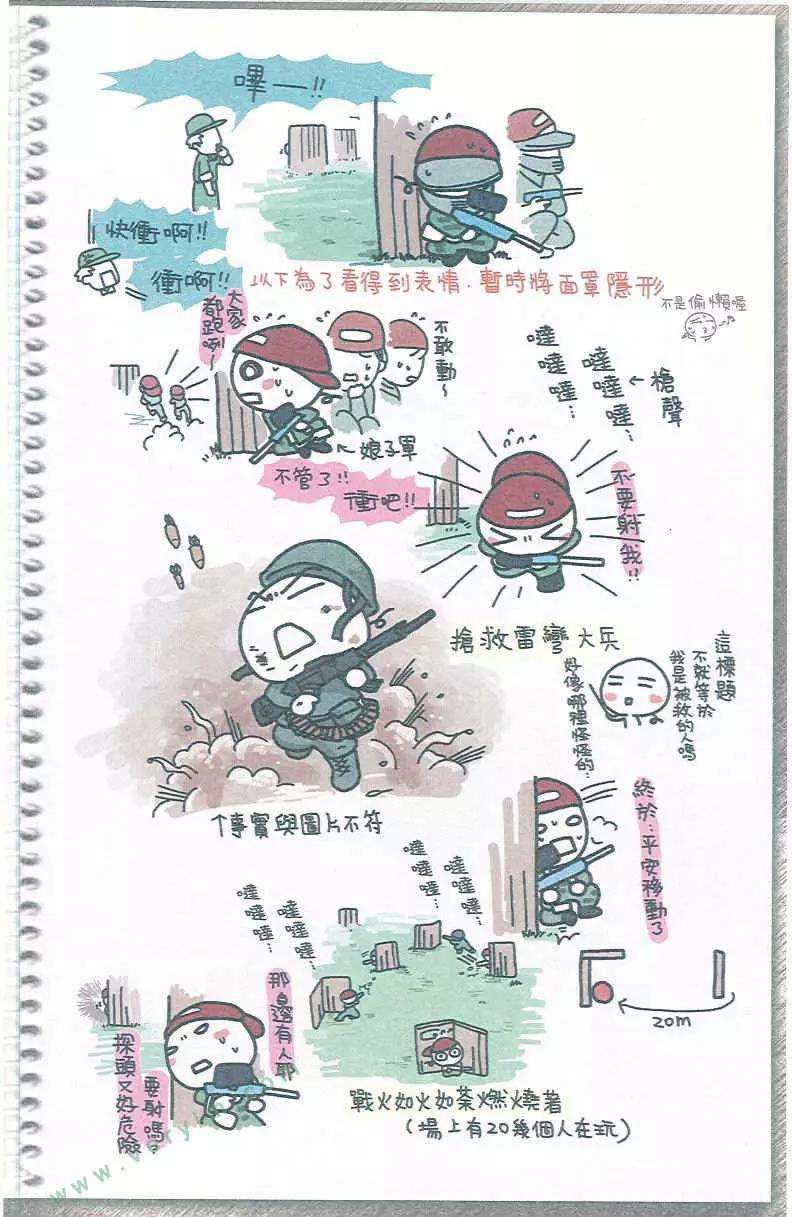 嗶——!!
快衝啊!!
衝啊!!
以下為了看得到表情.暫時將面罩隱形
不是偷懶喔
大家
都跑咧~
不敢動~
噠噠噠…
噠噠噠噠…
←槍聲
←娘子軍
不管了!!
衝吧!!
不要射我!!
搶救雷彎大兵
這標題
不就等於
我是被救的人嗎
好像哪裡怪怪的…
↑事實與圖片不符
終於…平安移動了
噠噠噠…
噠噠噠…
噠噠噠…
噠噠噠…
20m
那邊有人耶
要射嗎?
探頭又好危險
戰火如火如荼燃燒著
(場上有20幾個人在玩)